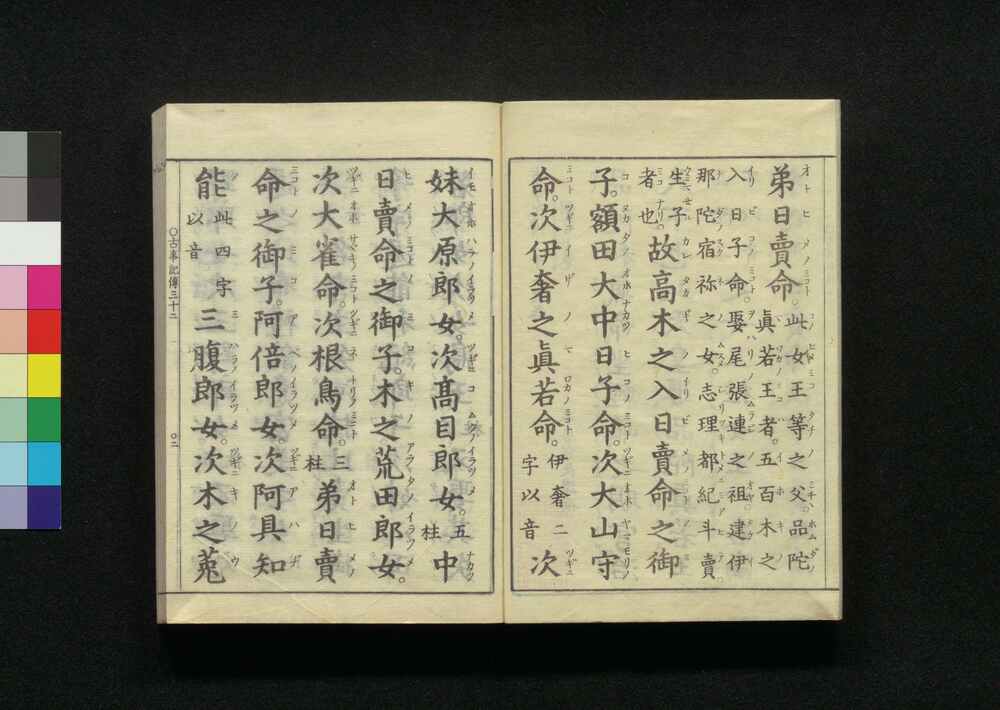 弟日賣命。此女王等之父品陀
眞若王者。五百木之
入日子命。娶尾張連之祖建伊
那陀宿祢之女。志理都紀斗賣
生子
者也。故高木之入日賣命之御
子。額田大中日子命。次大山守
命。次伊奢之眞若命。伊奢二字以音次
妹大原郎女。次髙目郎女。五柱中
日賣命之御子。木之荒田郎女。
次大雀命。次根鳥命。三柱弟日賣
命之御子。阿倍郎女。次阿具知
能此四字以音三腹郎女。次木之菟
〇古事記傳三十二
〇二